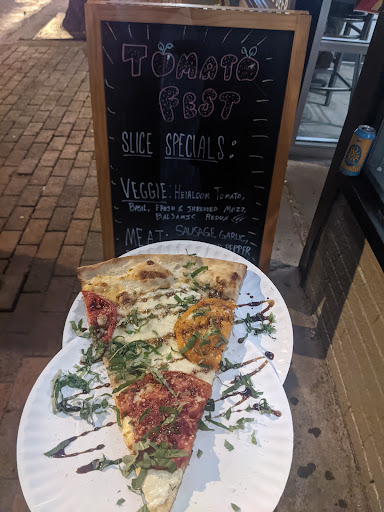 TOMATO
FEST
SLICE SPECIALS:
VEGGIE: HEIRLOOM TOMATO,
BASIL, FRESH & SHREDDED MOZZ,
BALSAMIC REDUX
MEAT: SAUSAGE, GARLIC,
PEPPER